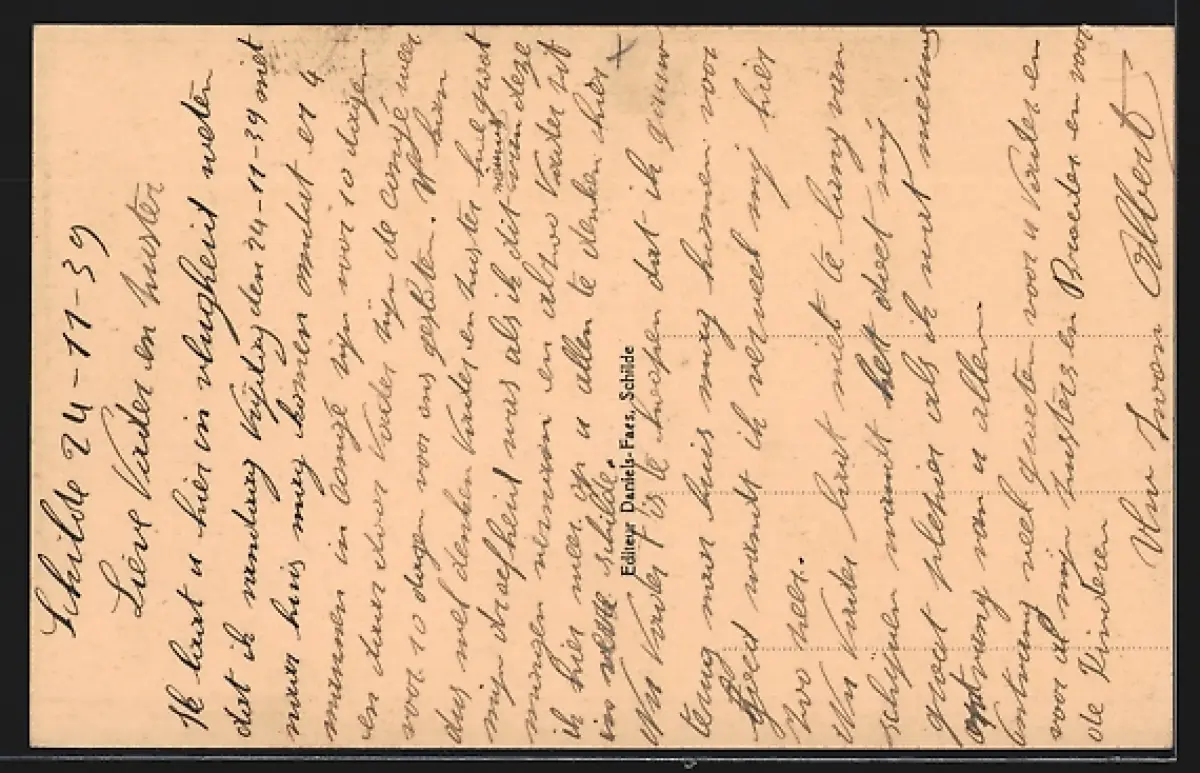 Schilde 24-11-39
Lieve Vader en zuster
Ik laat u hier in vlugheid weten
dat ik vandaag vrijdag den 24-11-39 niet
naar huis mag komen omdat er 4
mannen in congé zijn voor 10 dagen
en daar door Vader zijn de congé weer
voor 10 dagen voor ons gesloten. Ge kan
dus wel denken Vader en zuster hoe groot
mijn droefheid was als ik dit nieuws van deze
morgen vernam en alzoo Vader zit
ik hier weer op u allen te denken hier
in Schilde.
Nu Vader is te hoopen dat ik gauw
terug naar huis mag komen voor
goed want ik verveel mij hier
zoo zeer.
Nu Vader laat niet te lang van
schrijven want het doet mij
groot plezier als ik wat nieuws
ontvang van u allen
Ontvang veel groeten voor u Vader en
voor al mijn zusters en Broeder en voor
de Kinderen
Uw zoon Albert
Editeur Daniels-Faes, Schilde